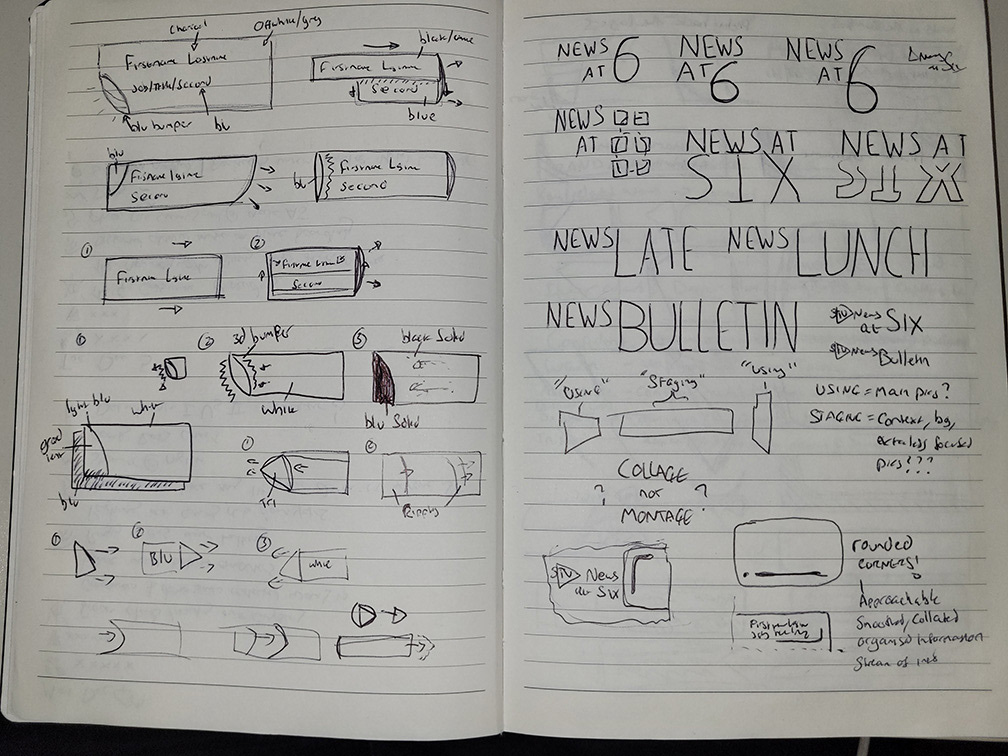 charcoal
Offwhite/grey
Firstname Lastname
Job/Title/Second
blu bumper
blu
black/white
Firstname L name
Second
blue
blu
Firstname L name
Second
blu
Firstname L name
Second
①
Firstname L name
②
Firstname L name
Second
①
②
3d bumper
white
⑤
black solid
blu solid
light blu
white
blu
①
②
Ripples
①
②
BlU
③
white
NEWS
AT 6
NEWS
AT 6
NEWS
AT 6
NEWS
AT
NEWS AT
SIX
NEWS AT
SIX
NEWS LATE
NEWS LUNCH
NEWS BULLETIN
STV News
at Six
STV News
Bulletin
"USING"
"Staging"
"using"
USING = Main pics?
STAGING = Context, bg,
extra less focused
pics???
COLLAGE
not
MONTAGE
? ?
STV News
at Six
rounded
CORNERS!
Approachable
Smoothed/Collated
organised information
Stream of info